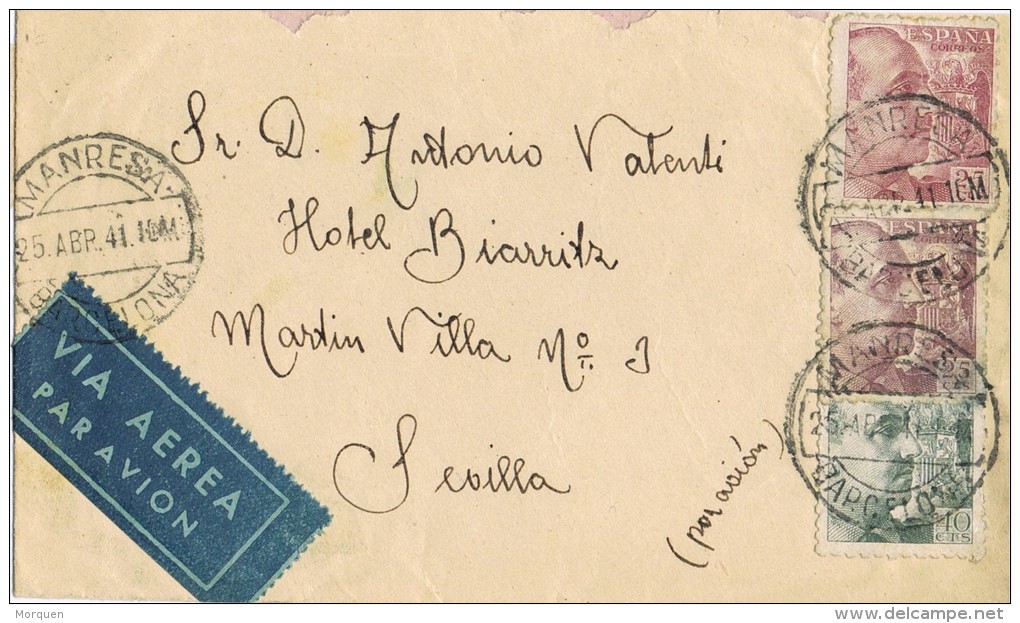 ESPAÑA
CORREOS
Sr. D. Antonio Valenti
Hotel Biarritz
Martin Villa Nº 3
Sevilla
(por avión)
MANRESA
25. ABR. 41. 10M
BARCELONA
VIA AEREA
PAR AVION
MANRESA
ABR. 41. 10M
25
CTS
MANRESA
25. ABR
BARCELONA
40
CTS
Morquen
www.delcampe.net